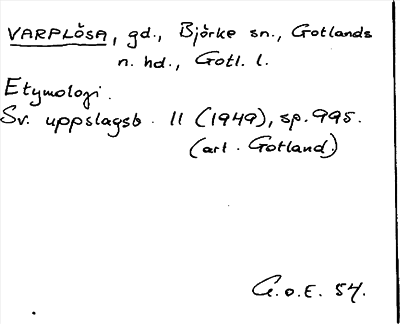 VARPLÖSA, gd., Björke sn., Gotlands
n. hd., Gotl. l.
Etymologi.
Sv. uppslagsb. 11 (1949), sp. 995.
(art. Gotland)
G.o.E. 54.